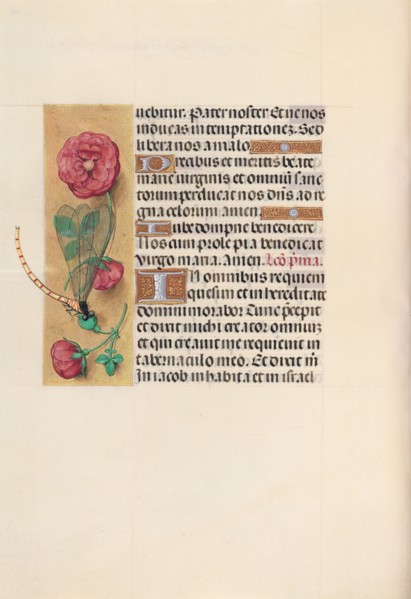 uebitur. Pater noster Et ne nos
inducas in temptationez. Sed
libera nos a malo.
Precibus et meritis beate
marie virginis et omniū sanc
torum perducat nos dn̄s ad re
gna celorum. Amen.
Iube dompne benedicere
Nos cum prole pia benedicat
virgo maria. Amen. Lc̄o p̄ma.
IN omnibus requiem
quesiui et in hereditate
domini morabor Tunc p̄cepit
et dixit michi creator omniuz
et qui creauit me requieuit in
tabernaculo meo. Et dixit m̄
In iacob inhabita et in israel